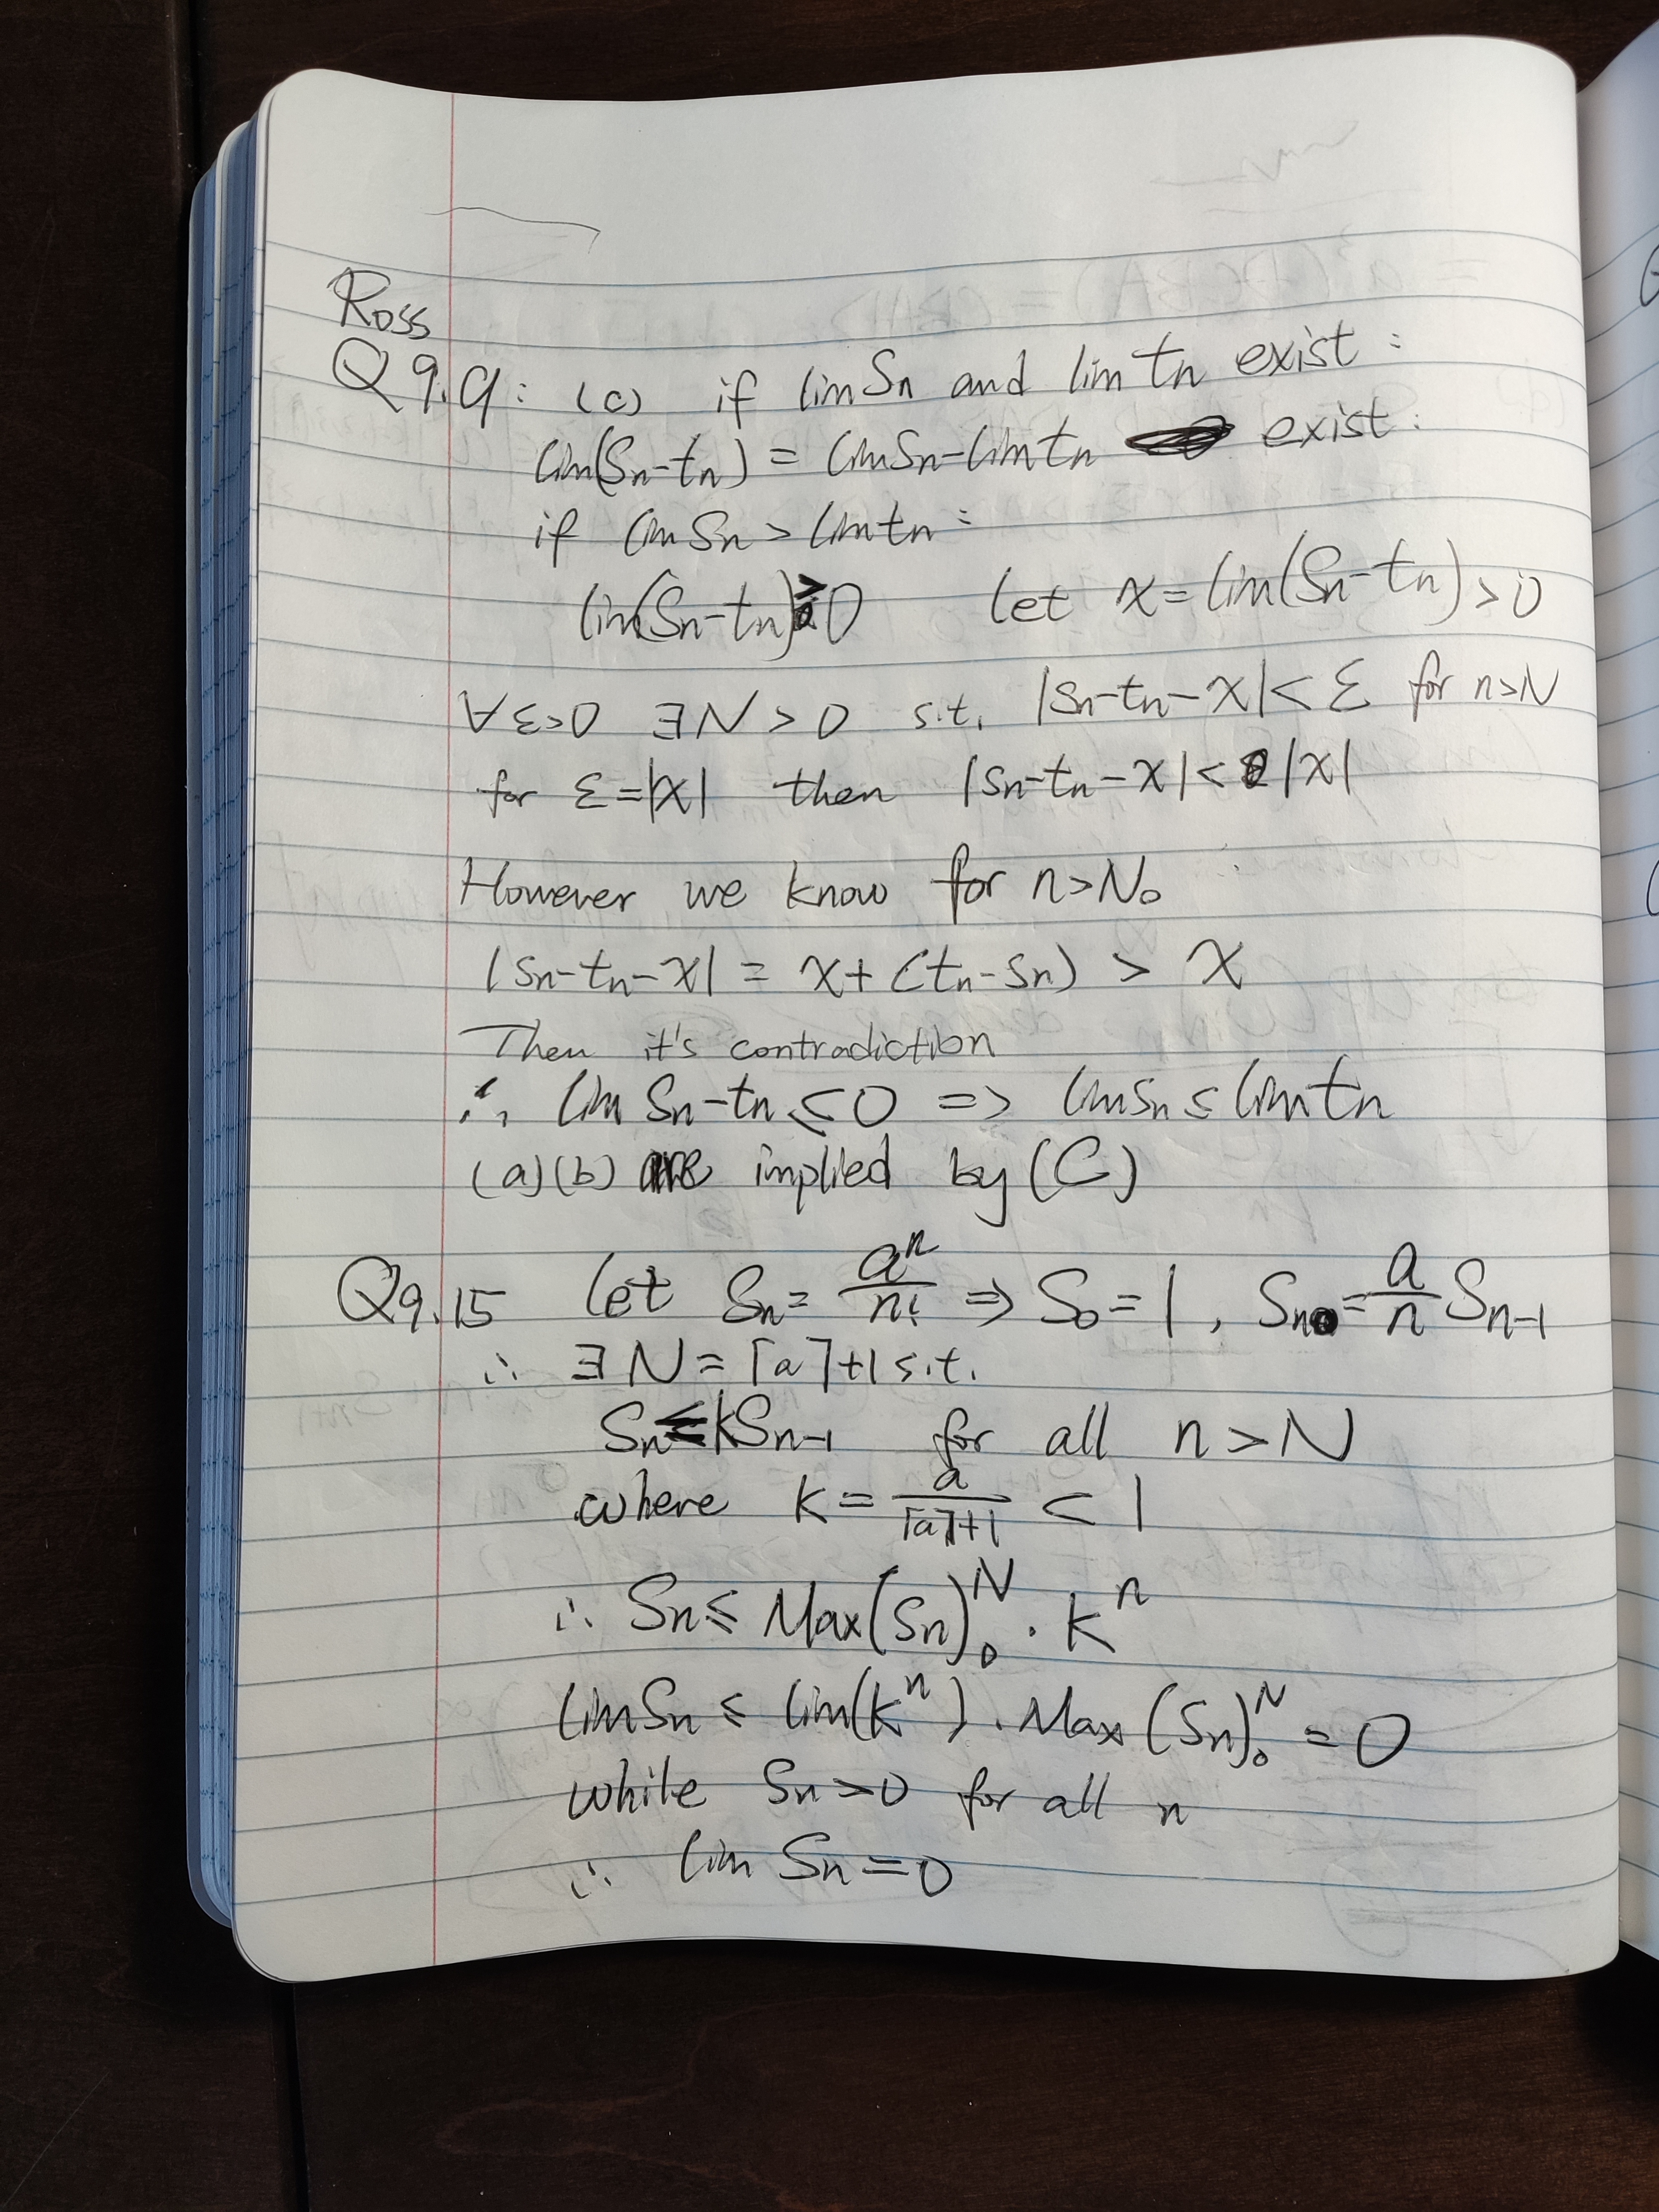 Ross
Q9.9: (c) if lim Sn and lim tn exist:
lim(Sn-tn) = lim Sn - lim tn exist:
if lim Sn > lim tn:
lim(Sn-tn) > 0 Let x = lim(Sn-tn) > 0
∀ε>0 ∃N>0 s.t. |Sn-tn-x| < ε for n>N
for ε=|x| then |Sn-tn-x| < |x|
However we know for n>N₀
|Sn-tn-x| = x+(tn-Sn) > x
Then it's contradiction
∴ lim Sn-tn ≤ 0 => lim Sn ≤ lim tn
(a)(b) are implied by (C)
Q9.15 Let Sn = aⁿ/n! => S₀=1, Sn = a/n Sn-1
∴ ∃N=⌈a⌉+1 s.t.
Sn ≤ kSn-1 for all n>N
where k = a/(⌈a⌉+1) < 1
∴ Sn ≤ Max(Sn)₀ᴺ · kⁿ
lim Sn ≤ lim(kⁿ) · Max(Sn)₀ᴺ = 0
while Sn>0 for all n
∴ lim Sn = 0